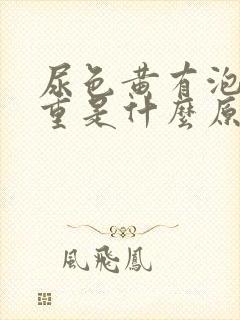 尿色黄有泡
重是什麼原
風飛鳳